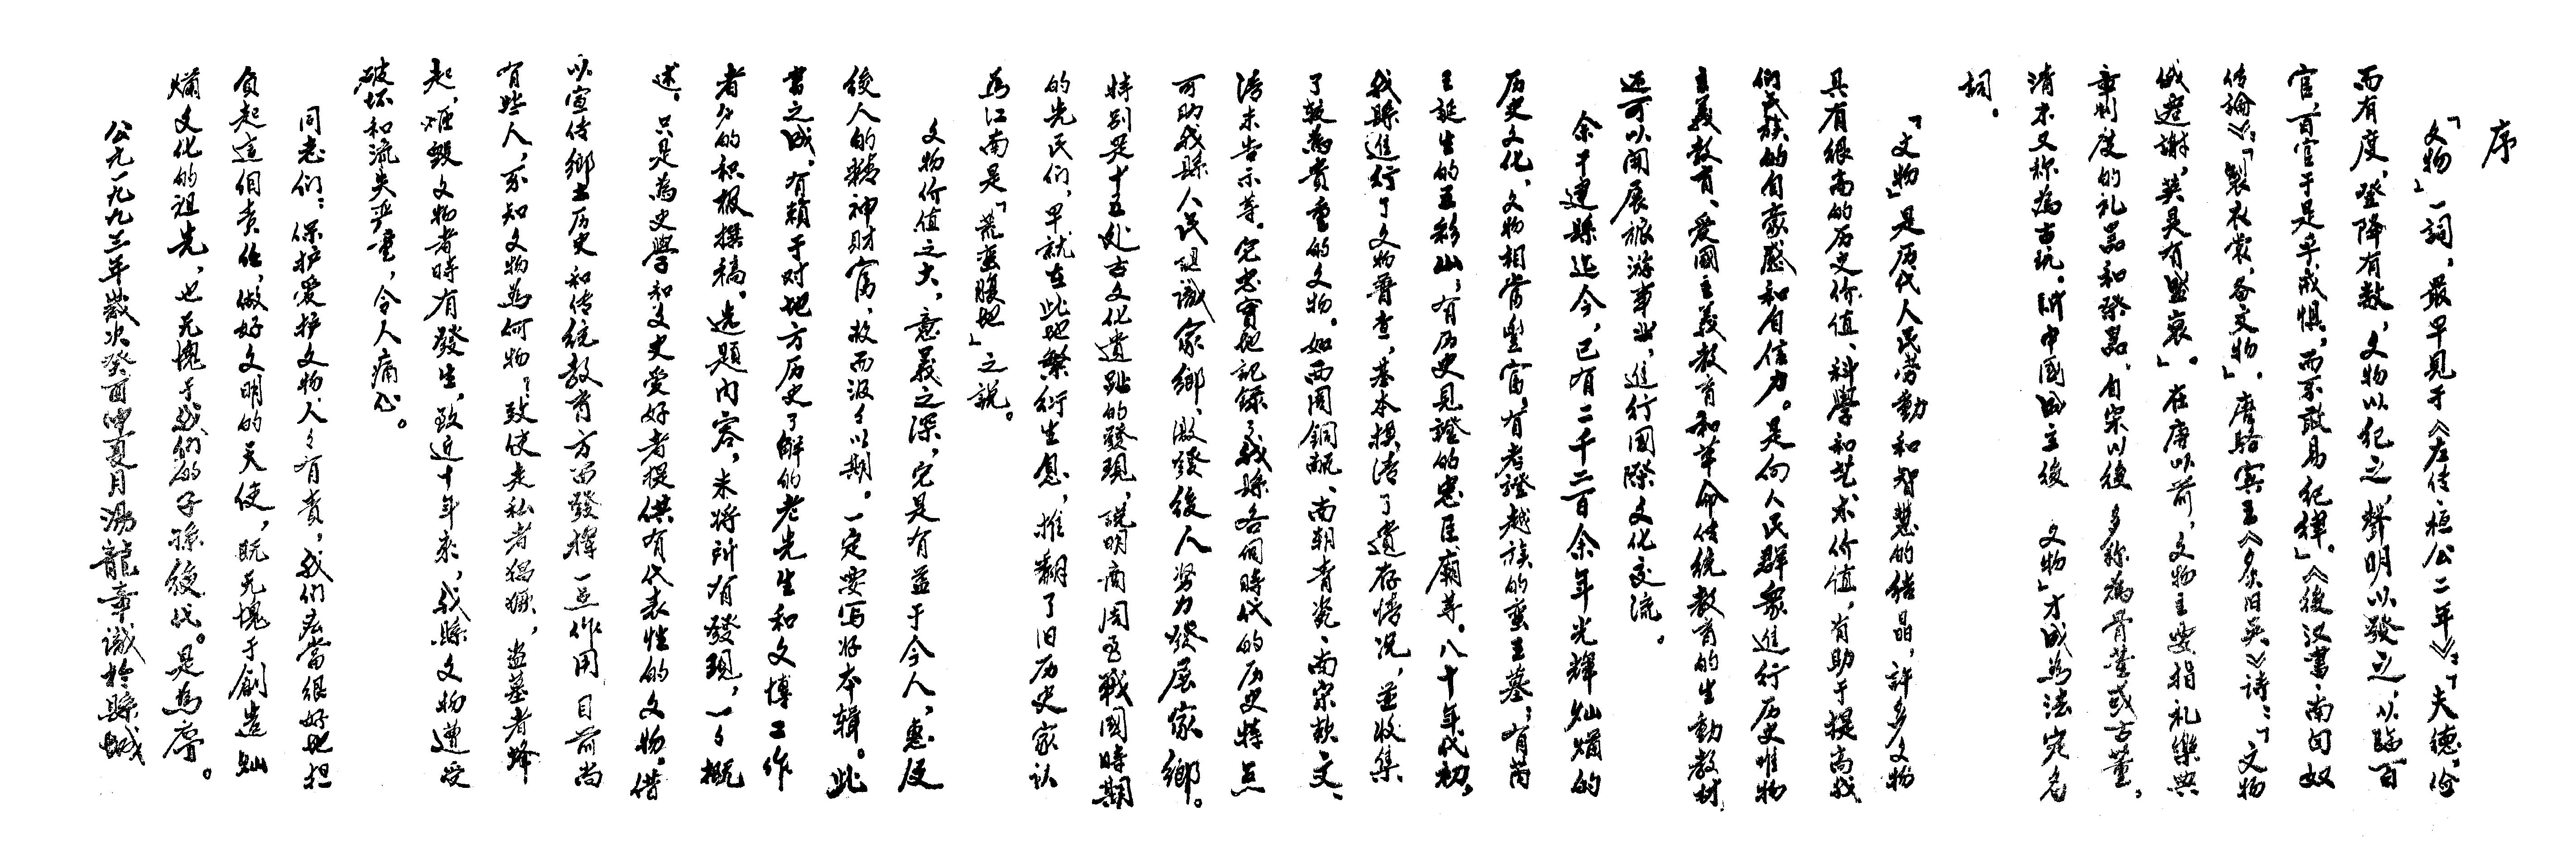 序
「文物」一詞，最早見于《左传·桓公二年》：「夫德，俭
而有度，登降有数，文物以纪之，聲明以發之，以臨百
官，百官于是乎戒惧，而不敢易纪律。」《後汉書·南匈奴
传論》：「製衣裳，备文物」。唐駱宾王《夕旧吴》诗：「文物
俄遷謝，英灵有盛衰」。在唐以前，文物主要指礼樂典
章制度的礼器和祭器，自宋以後多称為骨董或古董，
清末又称為古玩。新中國成立後「文物」才成為法定名
詞。
「文物」是历代人民劳動和智慧的结晶，許多文物
具有很高的历史价值、科學和艺术价值，有助于提高我
们民族的自豪感和自信力。是向人民群衆進行历史唯物
主義教育、爱國主義教育和革命传统教育的生動教材，
还可以開展旅游事业，進行國際文化交流。
余干建縣迄今，已有二千二百余年光輝灿爛的
历史文化，文物相當豐富，有者證越族的蛮王墓；有芮
王誕生的五彩山；有历史見證的忠臣廟等。八十年代初，
我縣進行了文物普查，基本摸清了遺存情况，並收集
了較為貴重的文物。如西周銅甗、南朝青瓷、南宋款文、
清末告示等。它忠實地記録了我縣各個時代的历史特点
可助我縣人民認識家鄉，激發後人努力發展家鄉。
特别是十五处古文化遺趾的發現，説明商周至戰國時期
的先民们，早就在此地繁衍生息，推翻了旧历史家认
為江南是「荒蛮腹地」之説。
文物价值之大，意義之深，它是有益于今人，惠及
後人的精神財富，故而汲々以期。一定要写好本輯。此
書之成，有賴于对地方历史了解的老先生和文博工作
者们的积极撰稿。选題内容，未将所有發現，一々概
述。只是為史學和文史爱好者提供有代表性的文物。借
以宣传鄉土历史和传统教育方面發揮一点作用。目前尚
有些人，不知文物為何物，致使走私者猖獗，盗墓者蜂
起，砸毁文物者時有發生，致近十年来，我縣文物遭受
破坏和流失严重，令人痛心。
同志们：保护爱护文物，人々有責，我们应當很好地担
負起這個責任，做好文明的天使，既无愧于創造灿
爛文化的祖先，也无愧于我们的子孫後代。是為序。
公元一九九三年歲次癸酉仲夏月湯龍章識於縣城